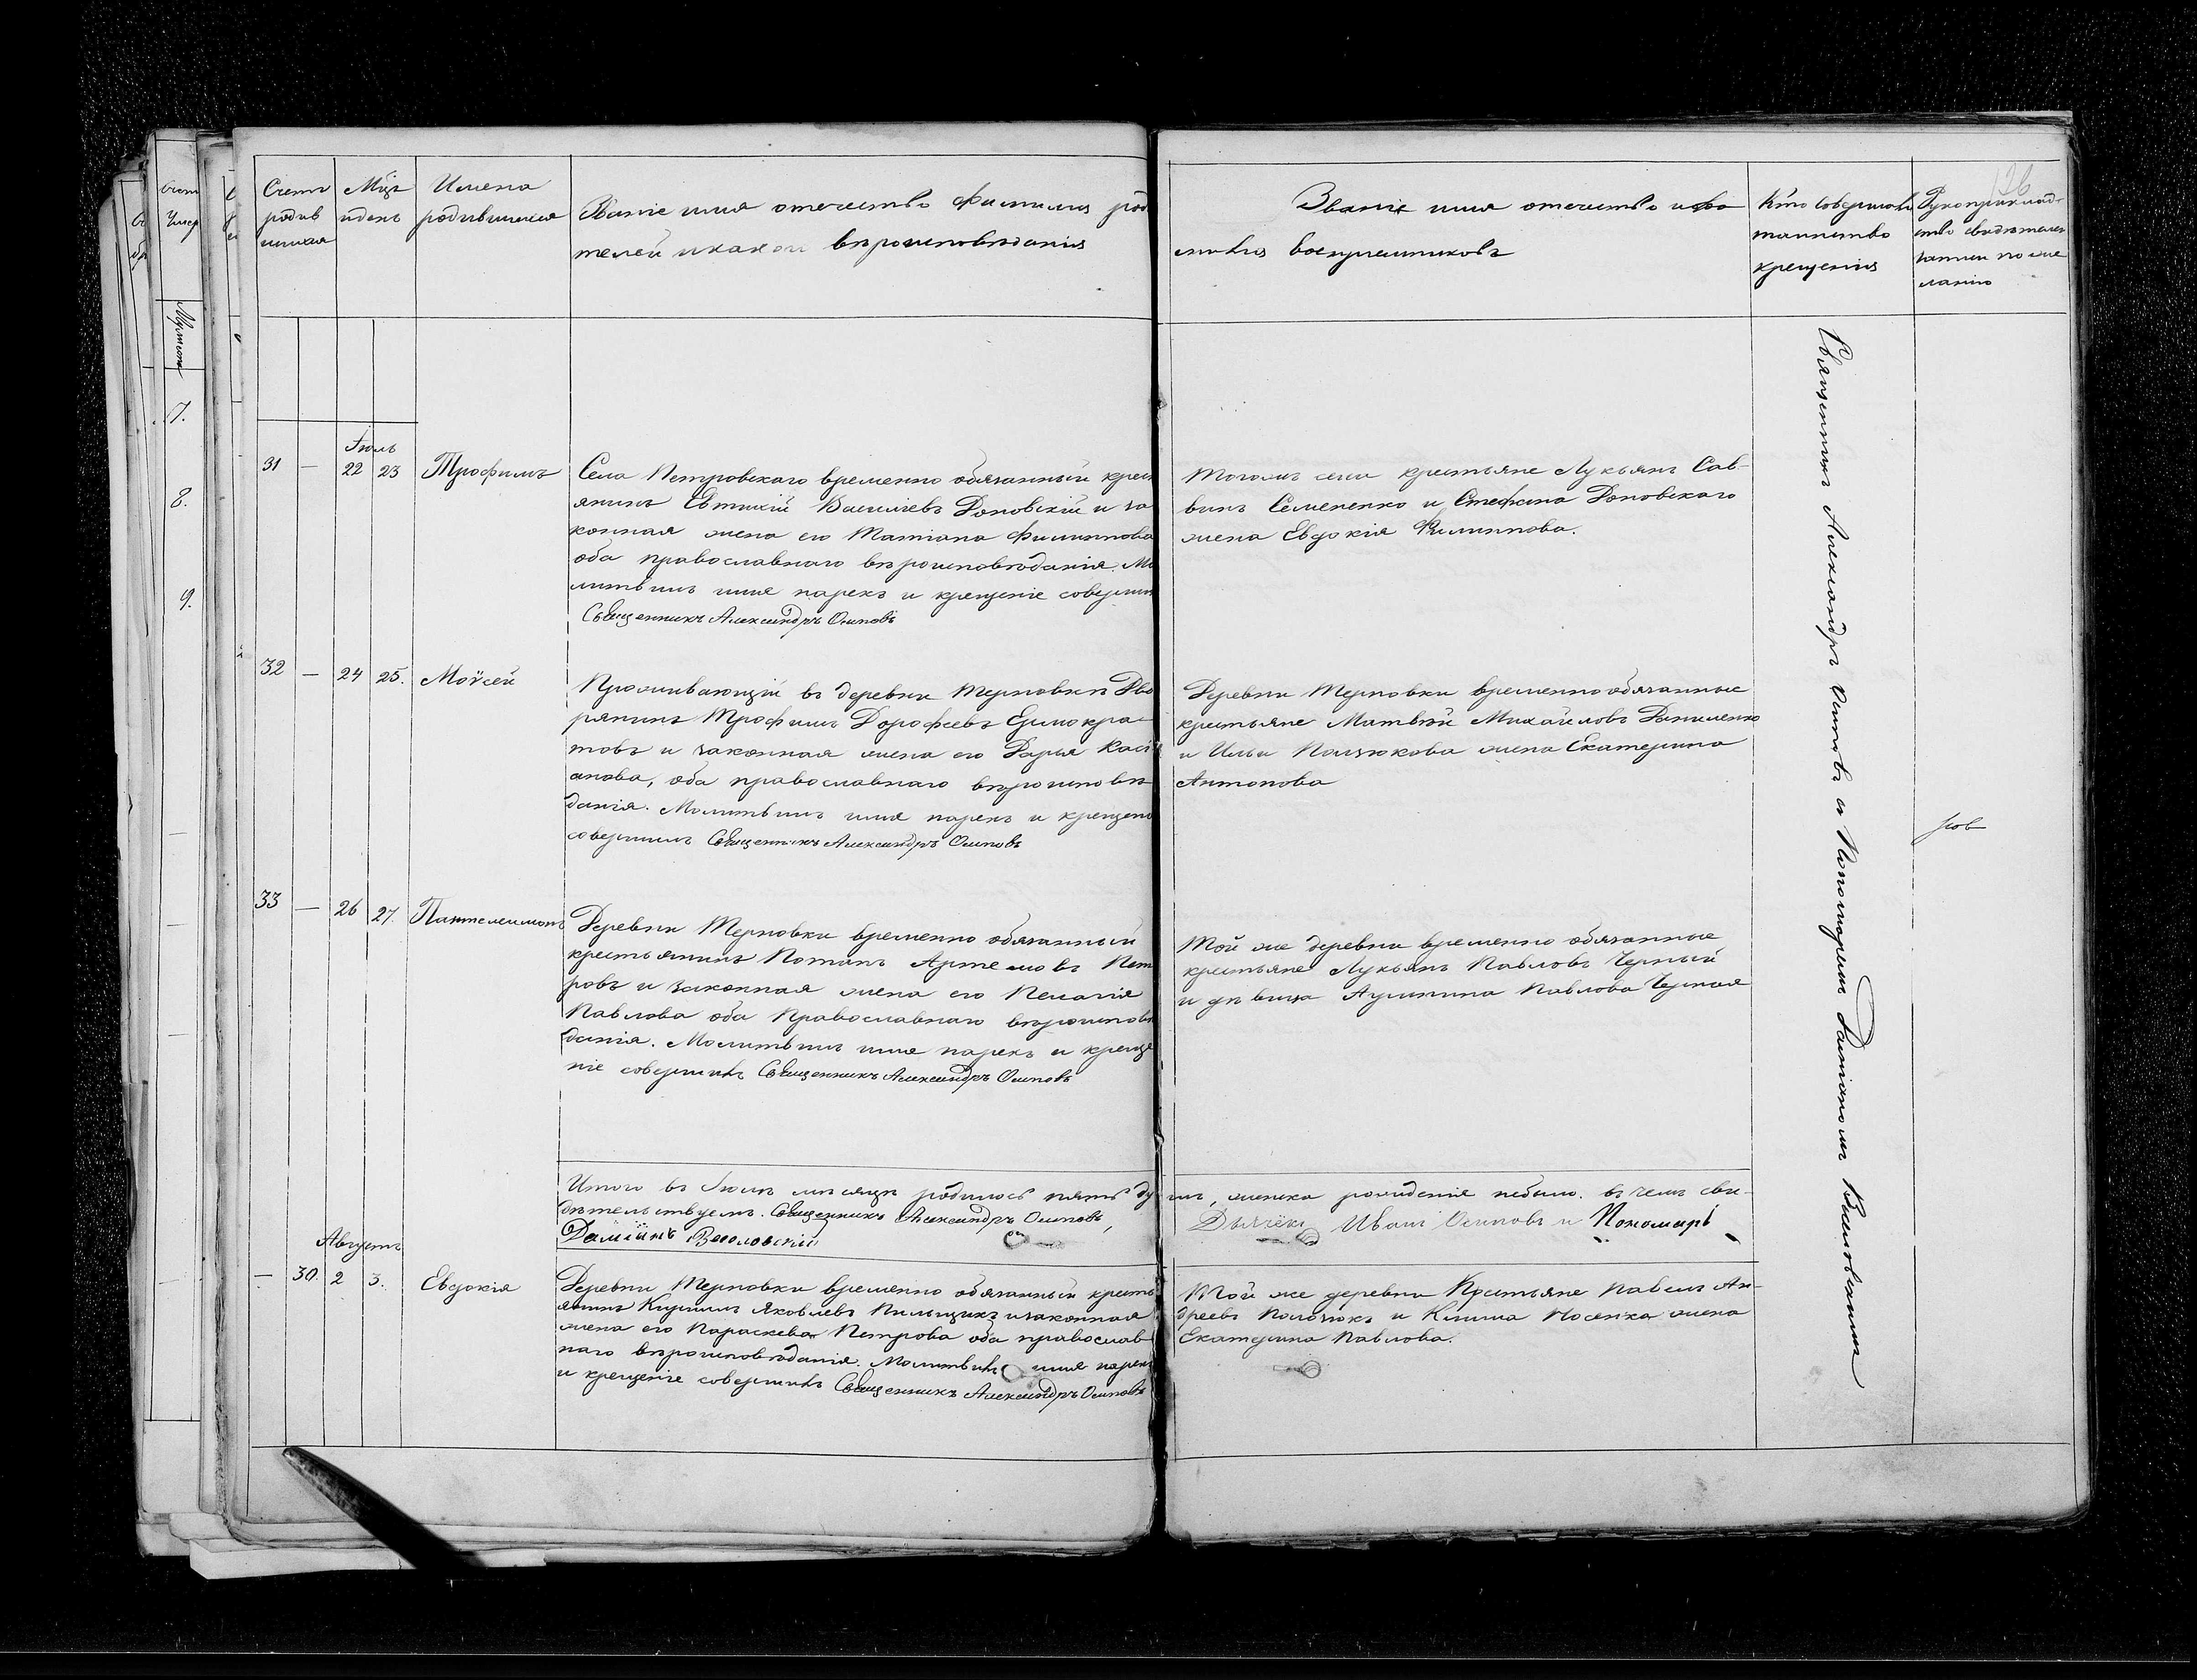 Счетъ
родив
шихся
Мцъ
и день
Имена
родившихся
Званіе имя отечество фамилия род
телей и какои вѣроисповѣданія
Званіе имя отечество и фа
милія воспреемниковъ
Кто совершалъ
таинство
крещенія
Рукоприклад
ство свидѣтелей
записи по же
ланію
126
Іюль
31 — 22 23 Трофимъ
Села Петровскаго временно обязанный крест
янинъ Евтихій Васильевъ и за
конная жена его Татіана Филиппова
оба православнаго вѣроисповѣданія. Мо
литвилъ имя нарекъ и крещеніе соверши
Священникъ Александръ Осиповъ
Тогожъ села крестьяне Лукьянъ Сав-
винъ Семененко и Стефана
жена Евдокія Филиппова.
32 — 24 25. Моѵсей
Проживающій въ деревни Терновки Дво
рянинъ Трофимъ Дорофеевъ Ермокра-
товъ и законная жена его Дарья Касі
анова, оба православнаго вѣроисповѣ
данія. Молитвилъ имя нарекъ и крещені
совершилъ Священникъ Александръ Осиповъ
Деревни Терновки временно обязанные
крестьяне Матвѣй Михайловъ Даниленко
и Ильи жена Екатерина
Антонова
33 — 26 27. Пантелеимонъ
Деревни Терновки временно обязанный
крестьянинъ Потапъ Артемовъ Пет
ровъ и законная жена его Пелагія
Павлова оба Православнаго вѣроисповѣ
данія. Молитвилъ имя нарекъ и креще
ніе совершилъ Священникъ Александръ Осиповъ
Той же деревни временно обязанные
крестьяне Лукьянъ Павловъ Черный
и дѣвица Павлова Черная
Итого въ Іюлѣ мѣсяцѣ родилось пять ду
шъ, женска рожденія небыло. въ чемъ сви-
дѣтельствуемъ. Священникъ Александръ Осиповъ,
Дьячекъ Иванъ Осиповъ и Пономарь
Даміанъ
Августъ
— 30. 2 3. Евдокія
Деревни Терновки временно обязанный кресть
янинъ Кирилъ Яковлевъ Пильщикъ и законная
жена его Параскева Петрова оба православ
наго вѣроисповѣданія. Молитвилъ имя нарекъ
и крещеніе совершилъ Священникъ Александръ Осиповъ
Той же деревни Крестьяне Павелъ Ан-
дреевъ и Клима Носенка жена
Екатерина Павлова.
Священникъ Александръ Осиповъ и Пономаремъ Даміаномъ
Счет
Умер
Мужеска
7.
8.
9.